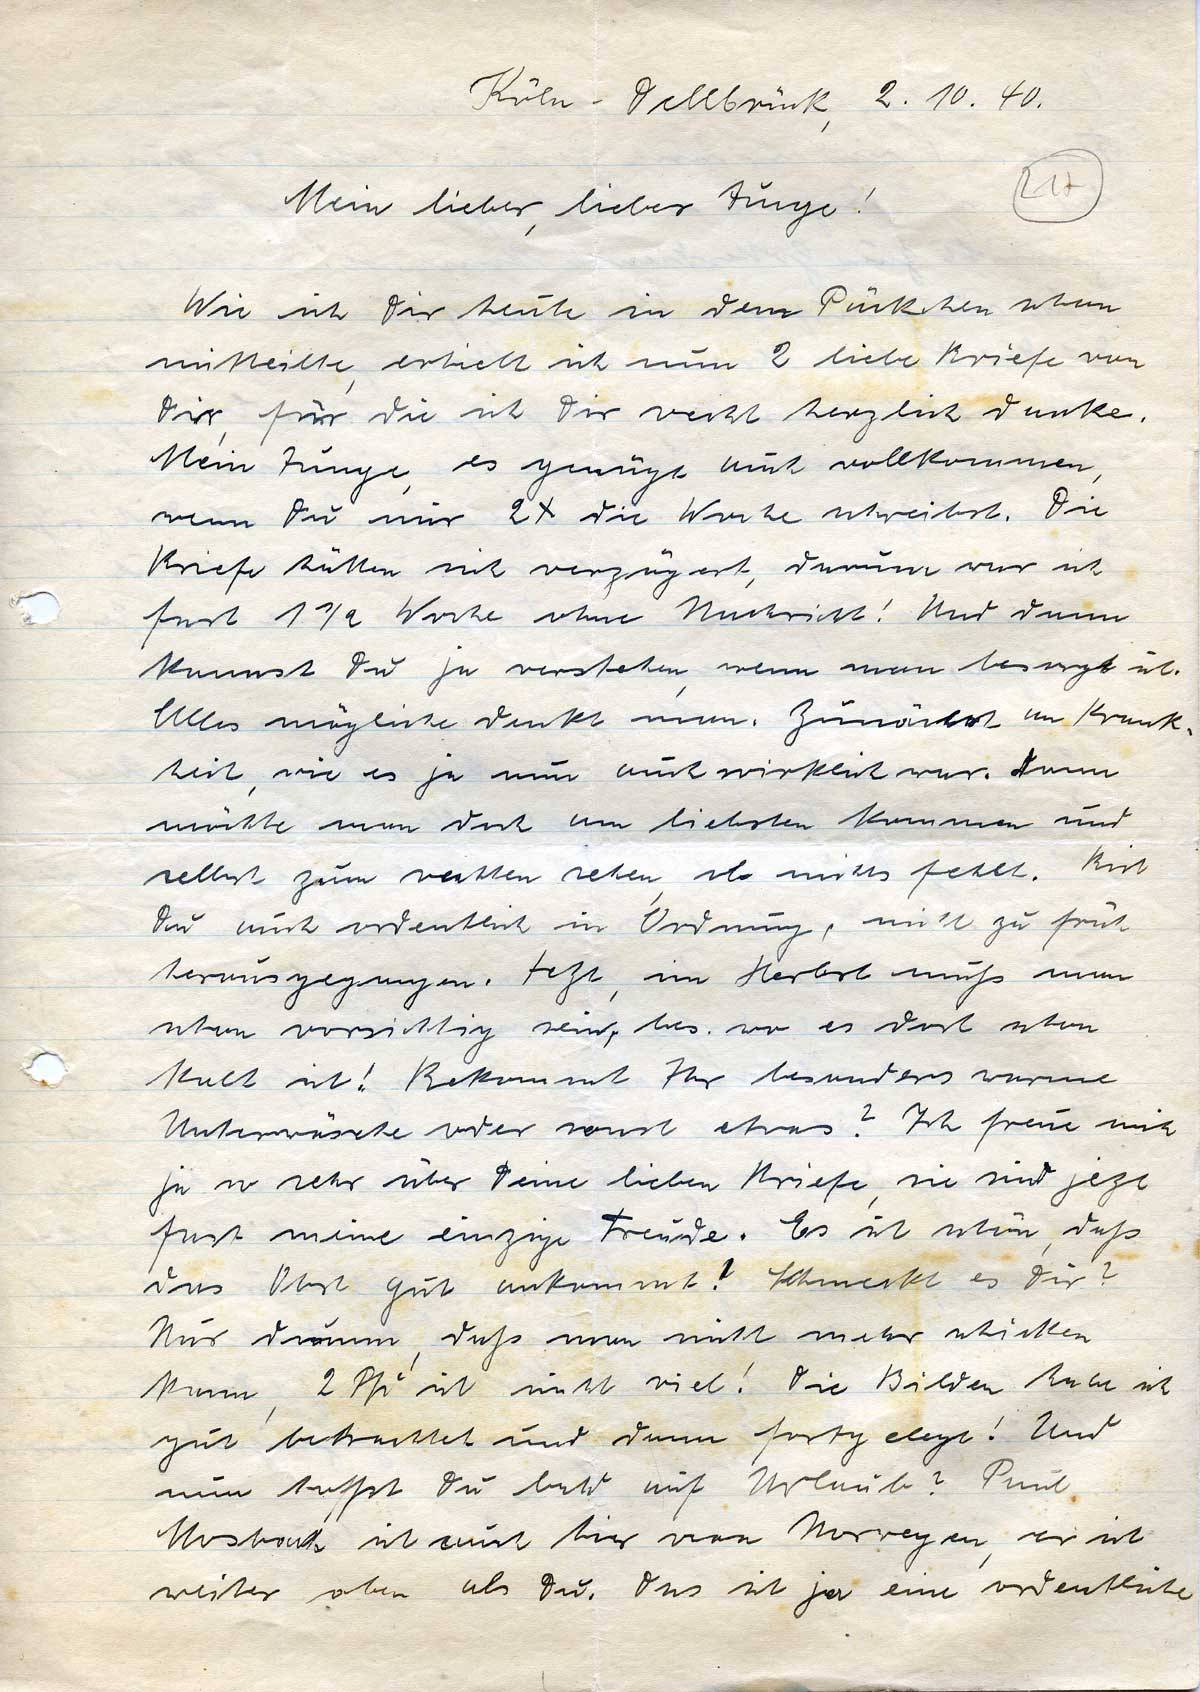 Köln - Dellbrück, 2. 10. 40.
Mein lieber, lieber Junge!
Wie ich Dir heute in dem Päckchen schon
mitteilte, erhielt ich nun 2 liebe Briefe von
Dir, für die ich Dir recht herzlich danke.
Mein Junge, es genügt auch vollkommen,
wenn Du mir 2x die Woche schreibst. Die
Briefe hatten sich verzögert, darum war ich
fast 1 1/2 Woche ohne Nachricht! Und dann
kannst Du ja verstehen, wenn man besorgt ist.
Alles mögliche denkt man. Zunächst an Krank-
heit, wie es ja nun auch wirklich war. Dann
möchte man doch am liebsten kommen und
selbst zum rechten sehen, ob nichts fehlt. Bist
Du auch ordentlich in Ordnung, nicht zu früh
herausgegangen. Jetzt, im Herbst muß man
schon vorsichtig sein, bes. wo es dort schon
kalt ist! Bekommt Ihr besonders warme
Unterwäsche oder sonst etwas? Ich freue mich
ja so sehr über Deine lieben Briefe, sie sind jetzt
fast meine einzige Freude. Es ist schön, daß
das Obst gut ankommt! Schmeckt es Dir?
Nur dumm, daß man nicht mehr schicken
kann, 2 Pfd ist nicht viel! Die Bilden habe ich
gut betrachtet und dann fortgelegt! Und
nun hoffst Du bald auf Urlaub? Paul
Mosbach ist auch hier von Norwegen, er ist
weiter oben als Du. Das ist ja eine ordentliche